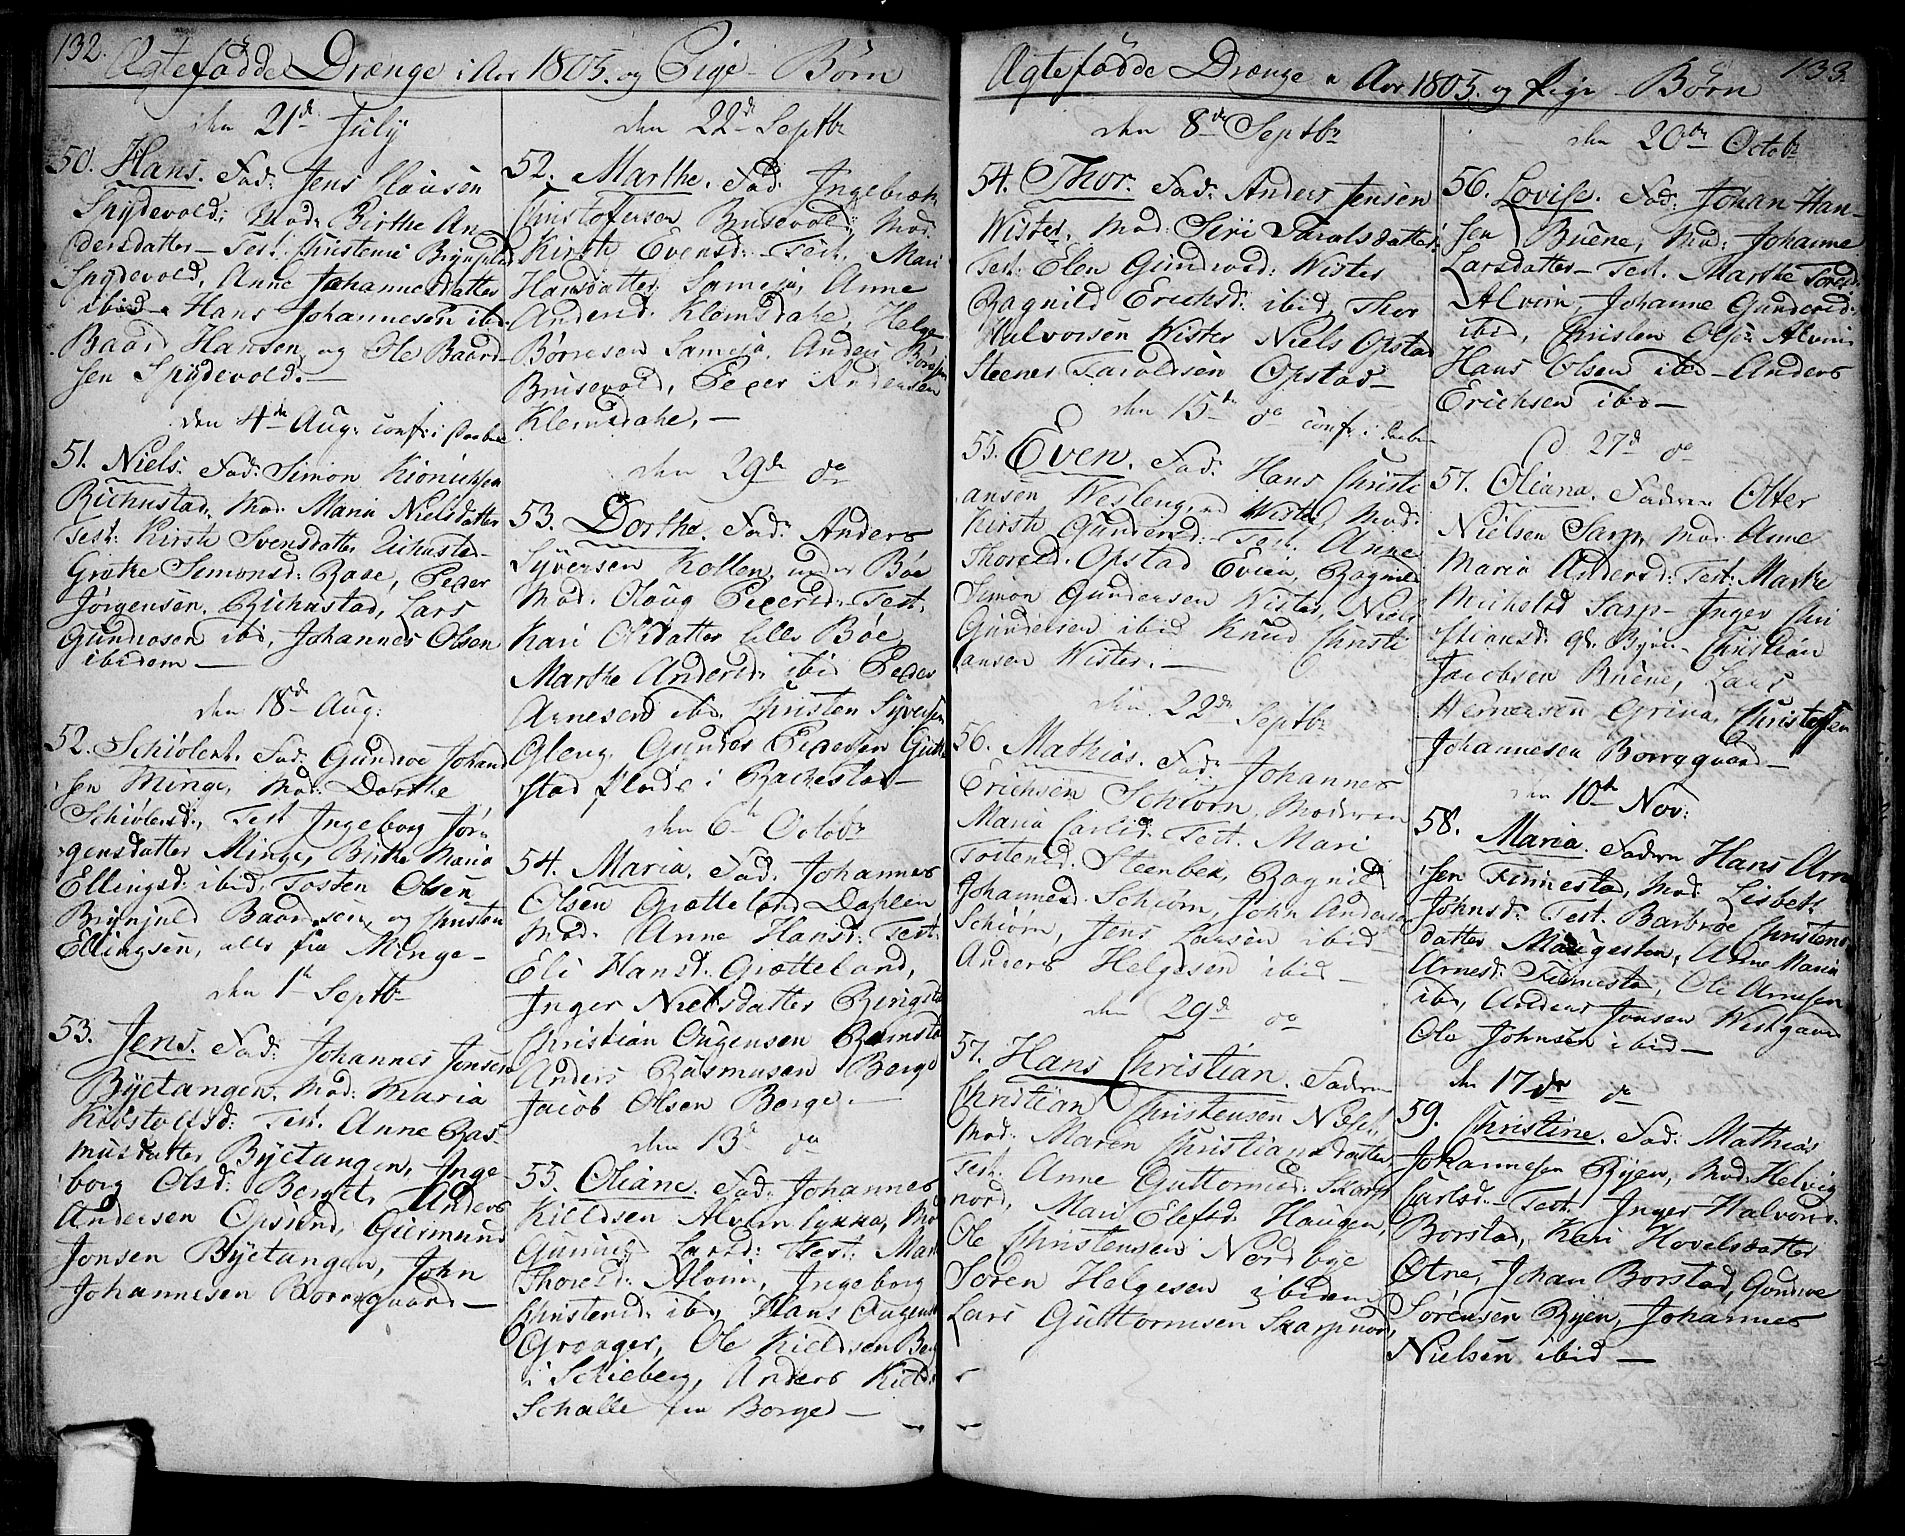 132.
Ægtefødde Drænge i Aar 1805. og Pige-Børn
den 21de July
50. Hans. Fad: Jens Clausen
Spydevold: Mod: Birthe An
dersdatter - Test. Christenie Brynjulds
Spydevold, Anne Johannesdatter
ibid - Hans Johannesen ibid
Baard Hansen og Ole Baard-
sen Spydevold. -
den 4de Aug: conf: i
51. Niels. Fad: Simon
Richustad. Mod. Maria Nielsdatter
Test: Kirsti Svensdatter
Grethe Simonsd: Rabe, Peder
Jørgensen, Richustad, Lars
Gundersen ibd, Johannes Olsen
ibidem -
den 18de Aug:
52. Schiølert. Fad: Gundroe Johan
sen Minge, Mod: Dorthe
Schiølersd:, Test Ingeborg Jør-
gensdatter Minge, Birthe Maria
Ellingsd: ibid, Tosten Olsen
Brynjuld Baardsen, og Christen
Ellingsen, alle fra Minge -
den 1te Septbr
53. Jens. Fad: Johannes Jensen
Byetangen. Mod: Maria
Test. Anne Ras-
musdatter Byetangen, Inge
borg Olsd: Berget, Anders
Andersen Opsund, Guermund
Jonsen Byetangen, John
Johannesen Borregaard -
den 22de Septbr
52. Marthe. Fad: Ingebreth
Christofersen Brusevold, Mod.
Kirsti Evensd: Test. Mari
Hansdatter Sameja, Anne
Andersd. Klemsdahe, Helge
Børresen Sameja, Anders Børresen
Brusevold, Peder Andersen
Klemsdahe, -
den 29de do
53. Dorthe. Fad: Anders
Syversen Kollen under Bøe
Mod. Oloug Pedersd - Test.
Kari Olsdatter lille Bøe,
Marthe Andersd. ibid Peder
Arnesen ibd. Christen Syversen
Gleng, Gunder Pedersen
stad Plads i Rackestad -
den 6te Octobr
54. Maria. Fad: Johannes
Olsen Grætteland Dahlen
Mod. Anne Hansd: Test:
Eli Hansd: Grætteland,
Inger Nielsdatter Ringstad
Christian Ougensen Ramstad
Anders Rasmusen Borge
Jacob Olsen Borge. -
den 13de do
55. Oliane. Fad: Johannes
Kieldsen Alvim Lykke, Mod
Gunnild Larsd: Test: Marthe
Thoresd: Alvim, Ingeborg
Christensd. ibd, Hans
Graager, Ole Kieldsen Berg
i Schieberg, Anders Kield:
Schalle fra Borge -
133
Ægtefødde Drænge i Aar 1805. og Pige Børn
den 8de Septbr
54. Thor. Fad: Anders Jensen
Wister. Mod: Siri Taralsdatter
Test: Elen Gundersd: Wister
Ragnild Erichsd: ibid, Thor
Halvorsen Wister Niels Opstad
Steener Taroldsen Opstad -
den 15de do conf: i
55. Even. Fad: Hans Christi
ansen Wesleng, Wister, Mod:
Kirsti Gundersd: Test: Anne
Thoresd: Opstad Evien, Ragnild
Simon Gundersen Wister, Niels
Gundersen ibid Knud Christi
ansen Wister. -
den 22de Septbr
56. Mathias. Fad: Johannes
Erichsen Schiørn, Moderen
Maria Carlsd. Test. Mari
Tostensd. Steenbek, Ragnild
Johannesd. Schiørn, John Andersen
Schiørn, Jens Larsen ibid
Anders Helgesen ibid -
den 29de do
57. Hans Christian. Faderen
Christian Christensen
Mod: Maren Christiansdatter
Test. Anne Guttormsd: Skarp
nord, Mari Elefsd: Haugen,
Ole Christensen Nordbye
Søren Helgesen ibidem
Lars Guttormsen Skarpnor,
den 20de Octobr
56. Lovise. Fad: Johan Han-
sen Buene, Mod: Johanne
Larsdatter - Test. Marthe Toresd:
Alvim, Johanne Gundersd:
ibid, Christen Olsen Alvim
Hans Olsen ibid - Anders
Erichsen ibid -
d 27de do
57. Oliana. Faderen Otter
Nielsen Sarp, Mod. Anne
Maria Andersd: Test: Marthe
Michelsd Sarp - Inger Chri
stiansd: Christian
Jacobsen Buene, Lars
Wernersen Grina, Christofer
Johannesen Borregaard -
den 10de Nov:
58. Maria. Faderen Hans Arne
sen Finnestad, Mod. Lisbeth
Johnsd: Test. Barbroe Christens
datter Maugesten, Anne Maria
Arnesd: Finnestad, Ole Arnesen
ibd, Anders Jonsen Westgaard
Ole Johnsen ibid -
den 17de do
59. Christine. Fad: Mathias
Johannesen Ryen, Mod: Helvig
Carlsd - Test. Inger Halvorsd
Borstad, Kari Hovelsdatter
Østne, Johan Borstad, Gundroe
Sørensen Ryen, Johannes
Nielsen ibid -